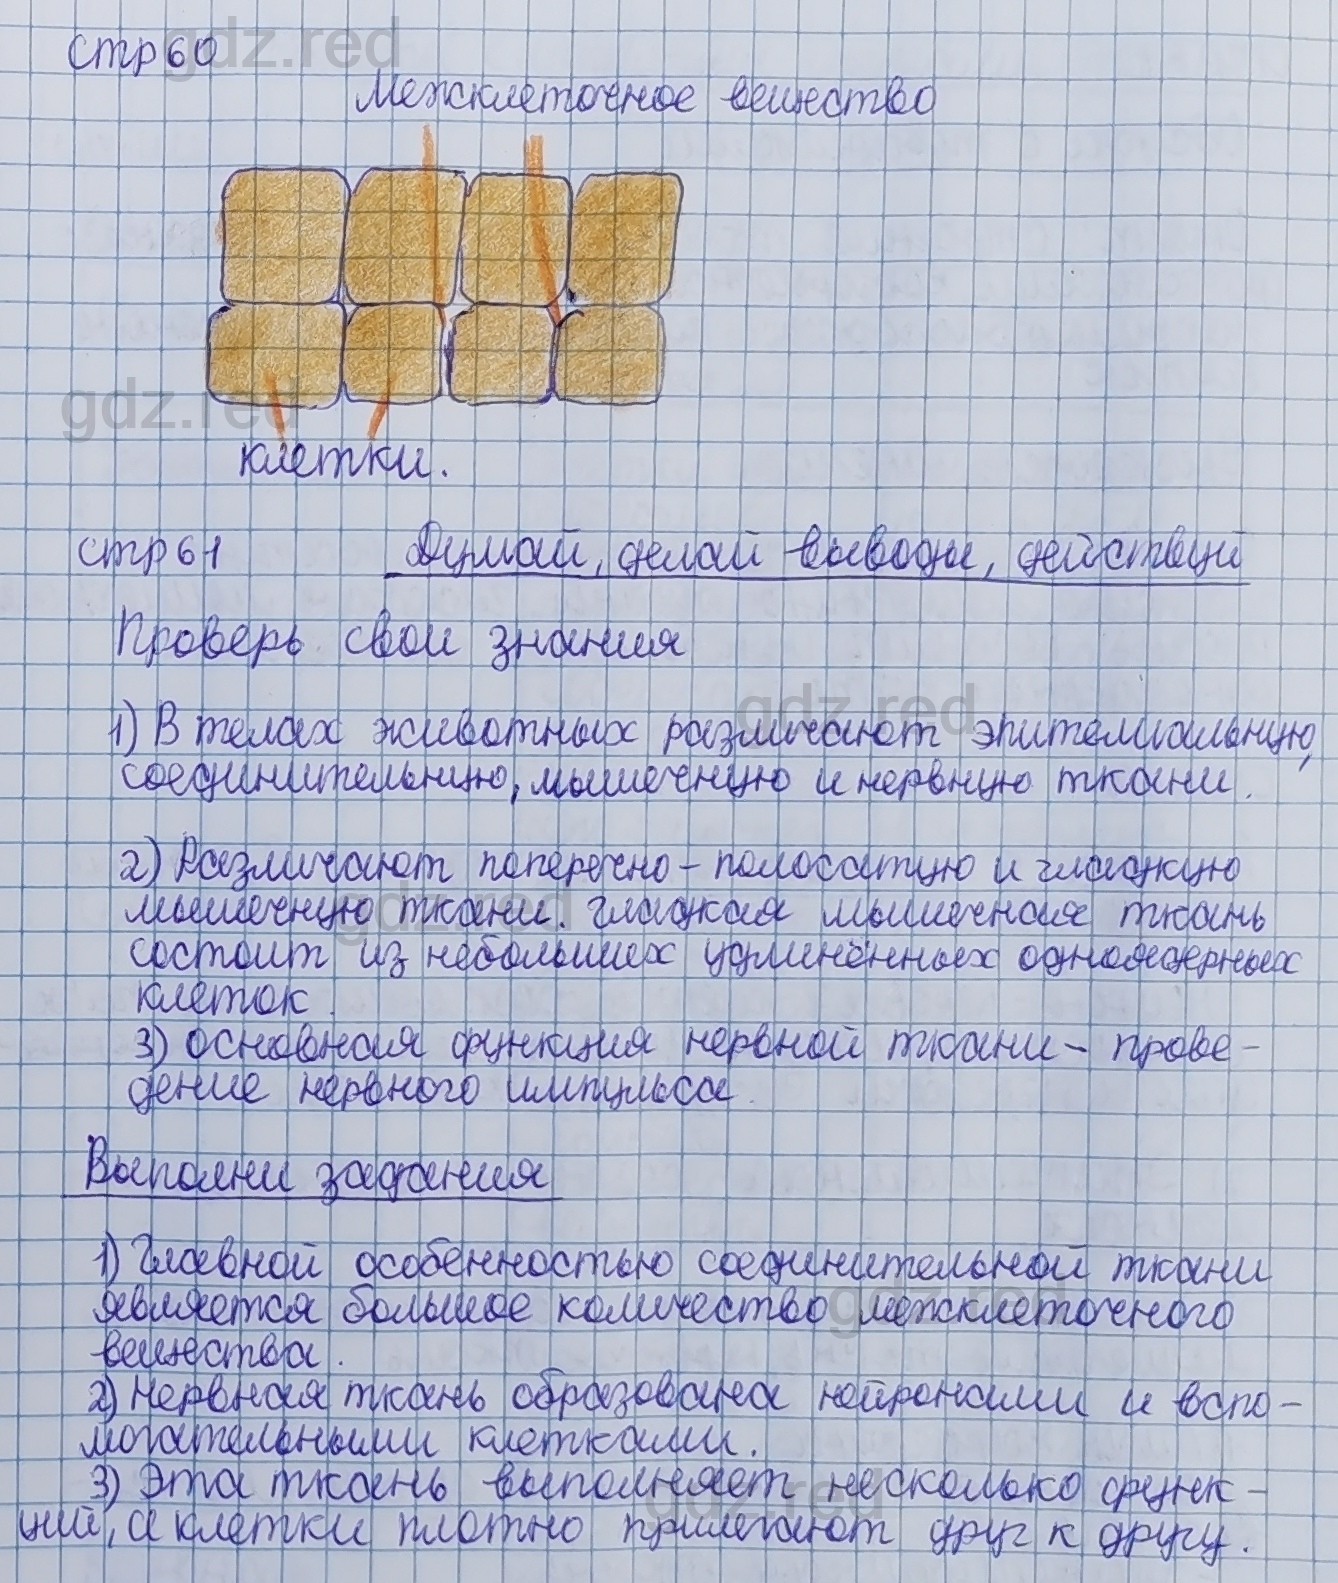 стр 60
Межклеточное вещество
клетки.
стр 61 Думай, делай выводы, действуй
Проверь свои знания
1) В телах животных различают эпителиальную,
соединительную, мышечную и нервную ткани.
2) Различают поперечно-полосатую и гладкую
мышечную ткани. Гладкая мышечная ткань
состоит из небольших удлинённых одноядерных
клеток.
3) Основная функция нервной ткани - прове-
дение нервного импульса.
Выполни задания
1) Главной особенностью соединительной ткани
является большое количество межклеточного
вещества.
2) Нервная ткань образована нейронами и вспо-
могательными клетками.
3) Эта ткань выполняет несколько функ-
ций, а клетки плотно прилегают друг к другу.
gdz.red
gdz.red
gdz.red
gdz.red
gdz.red
gdz.red